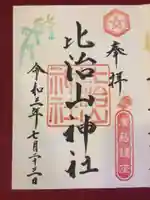 奉拝
比治山神社
令和三年七月二十三日